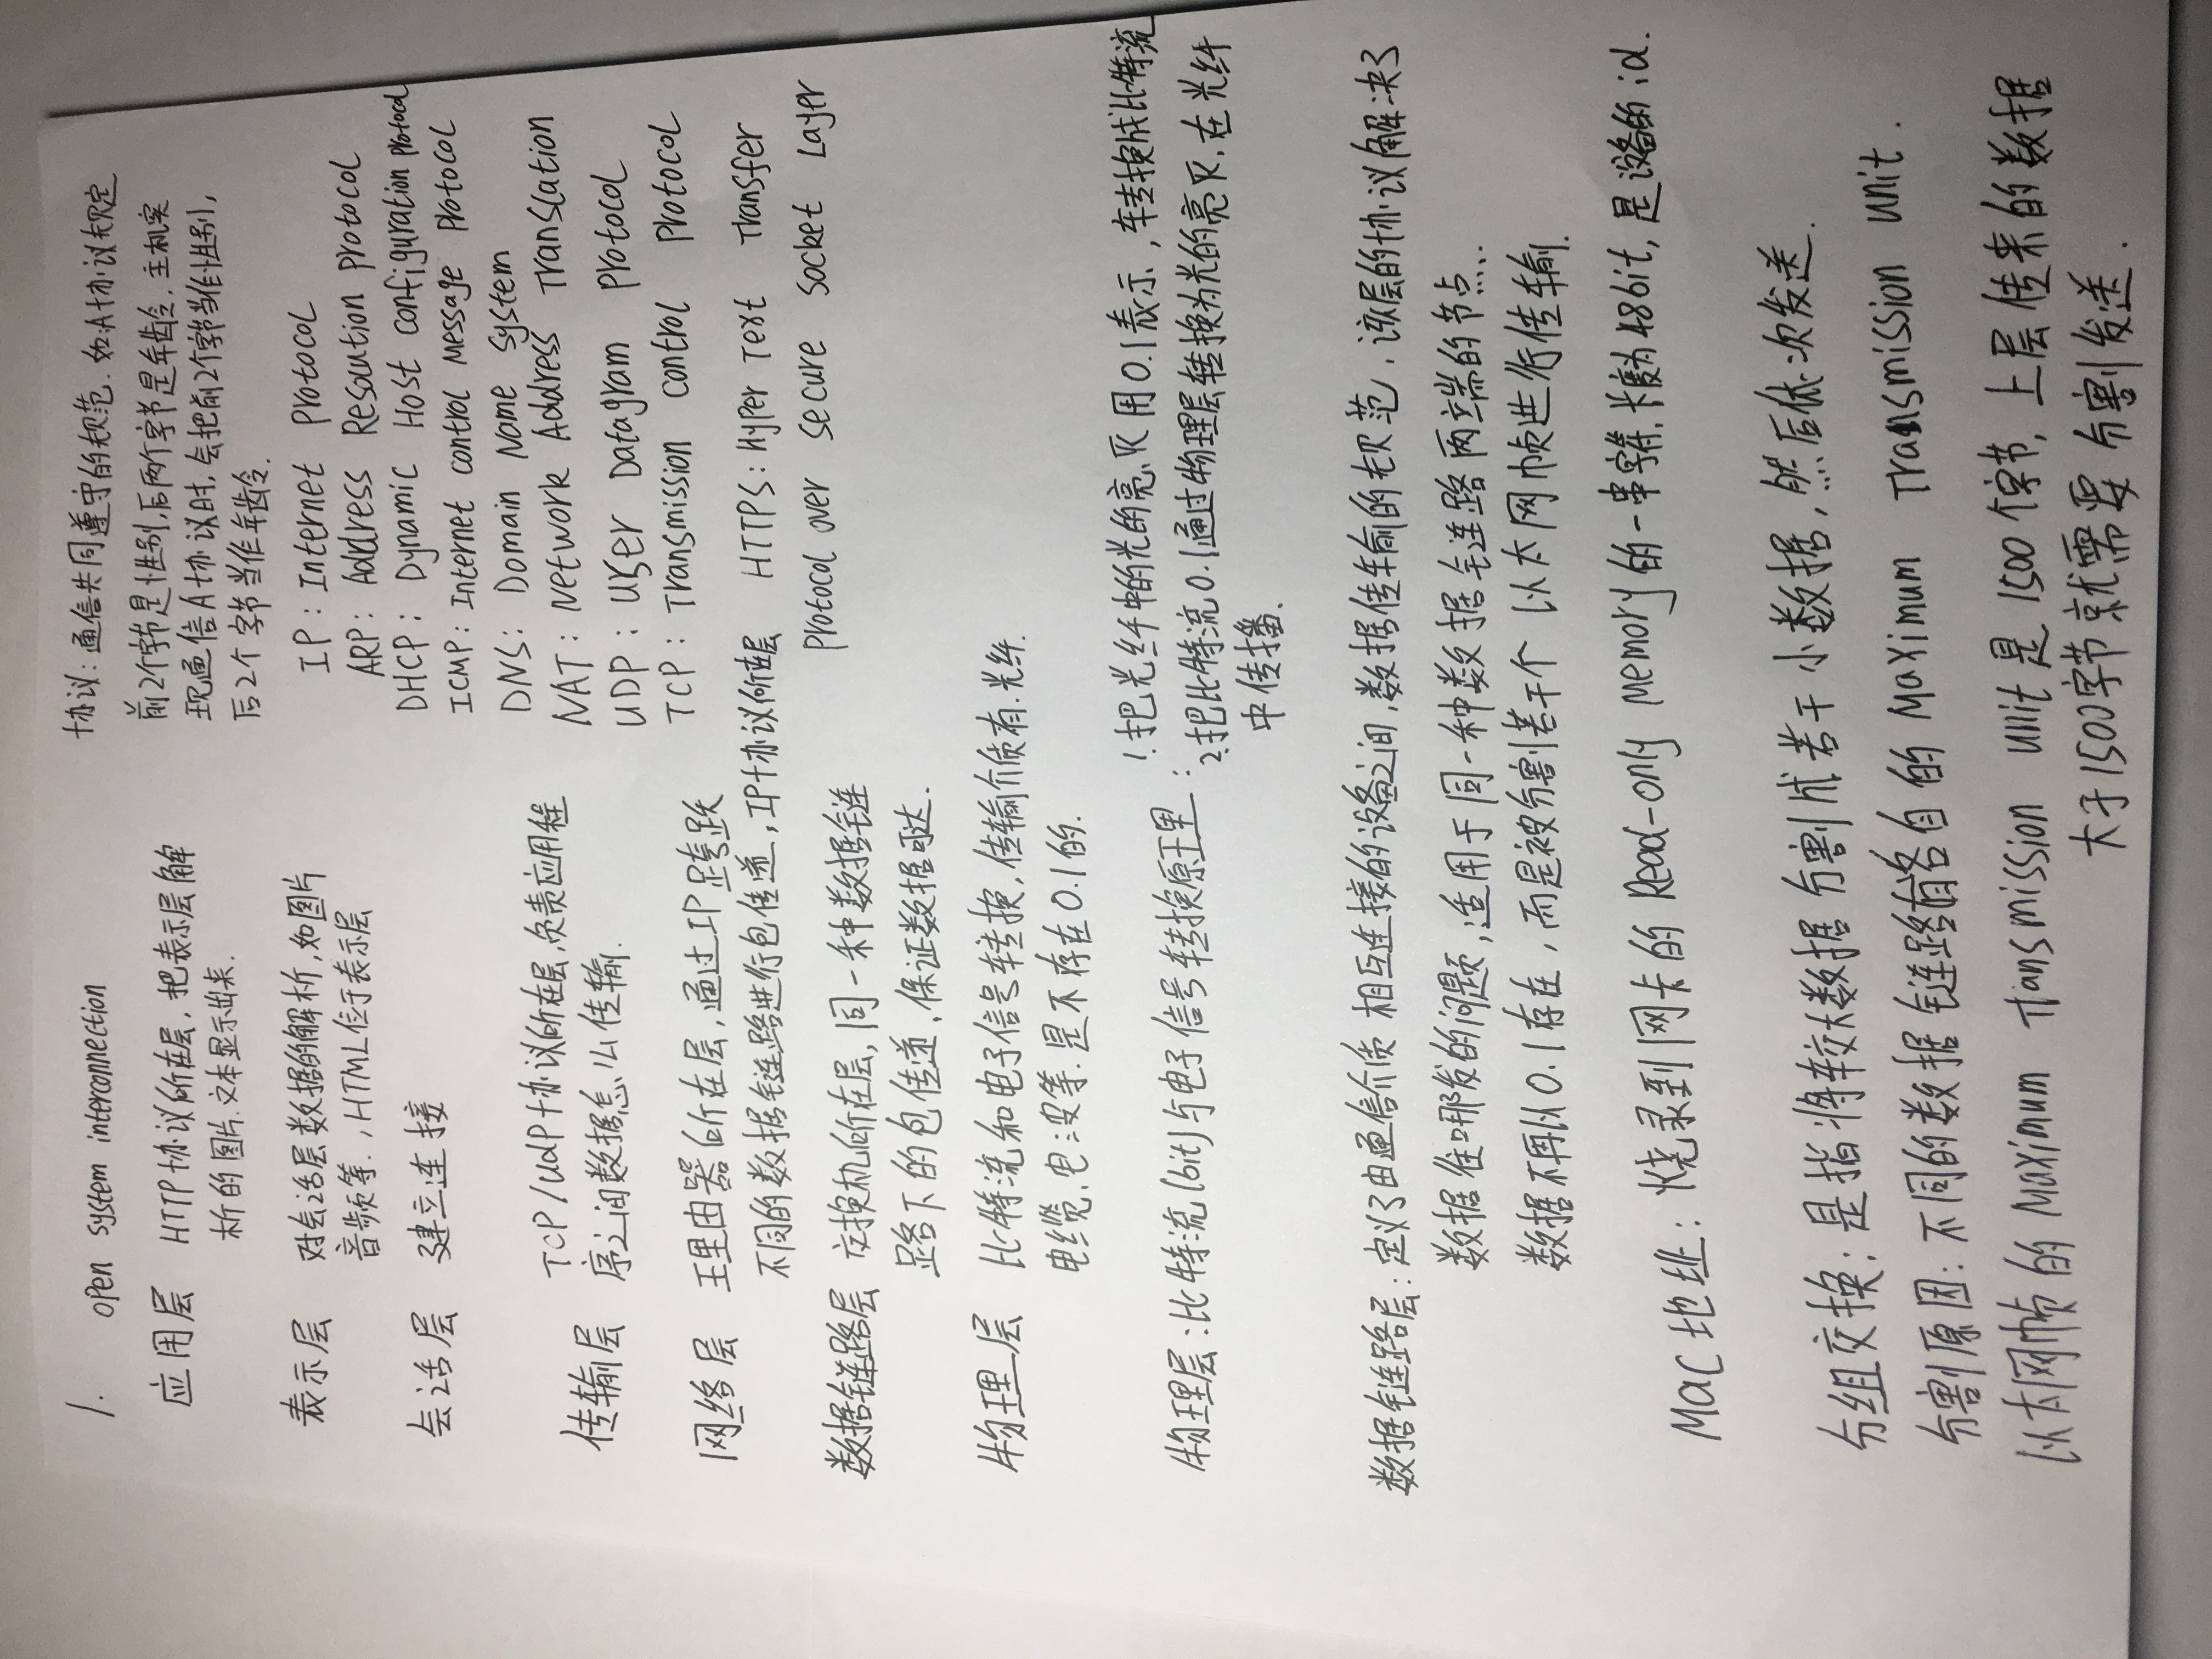 1. open system interconnection
应用层 HTTP协议所在层，把表示层解
析的图片.文本显示出来.
表示层 对会话层数据的解析，如图片
音频等.，HTML位于表示层
会话层 建立连接
TCP/UdP协议所在层，负责应用程
传输层 序之间数据怎么传输.
网络层 理由器所在层，通过IP跨跃
不同的数据链路进行包传递，IP协议所在层
数据链路层 交换机所在层，同一种数据链
路下的包传递，保证数据可达.
物理层 比特流和电子信号转换，传输介质有.光纤.
电缆、电波等.是不存在0.1的.
协议：通信共同遵守的规范.如:A协议规定
前2个字节是性别，后两个字节是年龄.主机实
现通信A协议时，会把前2个字节当作性别，
后2个字节当作年龄.
IP: Internet Protocol
ARP: Address Resolution Protocol
DHCP: Dynamic Host Configuration Protocol
ICMP: Internet control Message Protocol
DNS: Domain Name System
NAT: Network Address Translation
UDP: User Datagram Protocol
TCP: Transmission Control Protocol
HTTPS: Hyper Text Transfer
Protocol over secure socket Layer
物理层：比特流(bit)与电子信号转换原理：
1.把光纤中的光的亮、灭用0.1表示，转换成比特流
2.把比特流0.1通过物理层转换为光的亮灭.在光纤
中传播.
数据链路层：定义了由通信介质相互连接的设备之间，数据传输的规范，该层的协议解决了
数据往哪发的问题，适用于同一种数据链路两端的节点.
数据不再以0.1存在，而是被分割若干个以太网帧进行传输.
Mac地址：烧录到网卡的Read-only Memory的一串字符.长度为48bit，是设备的id.
分组交换：是指将较大数据分割成若干小数据，然后依次发送.
分割原因：不同的数据链路有各自的Maximum Transmission unit.
以太网帧的Maximum Transmission unit是1500个字节，上层传来的数据
大于1500字节就需要分割发送.